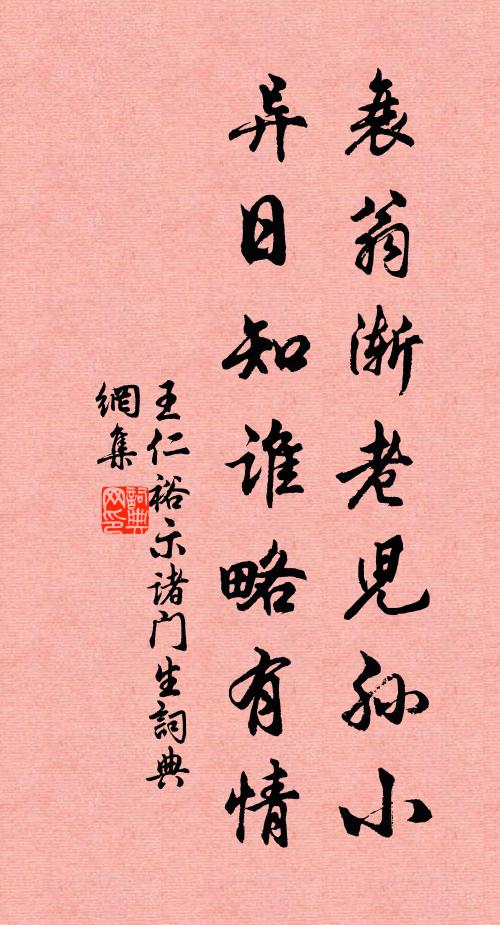 衰翁渐老児孙小
异日知谁略有情
王仁裕示诸门生詞典
網集
詞典
网印